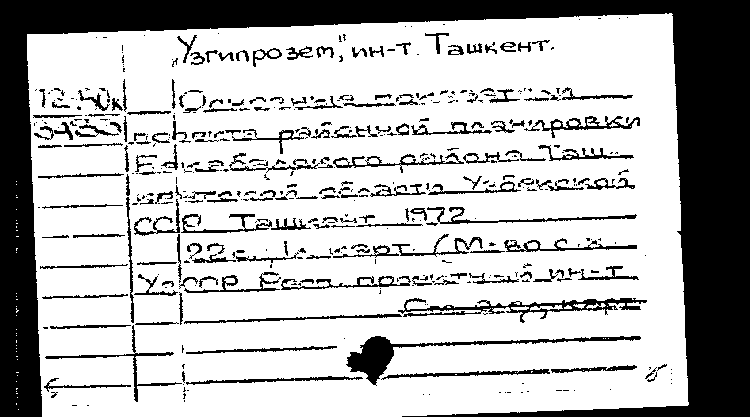 „Узгипрозем", ин-т. Ташкент.
Основные показатели
проекта районной планировки
Бекабадского района Таш-
кентской области Узбекской
ССР. Ташкент 1972
22 с. 1 л. карт. (М-во с.х.
УзССР Респ. проектный ин-т
См. след. карт.